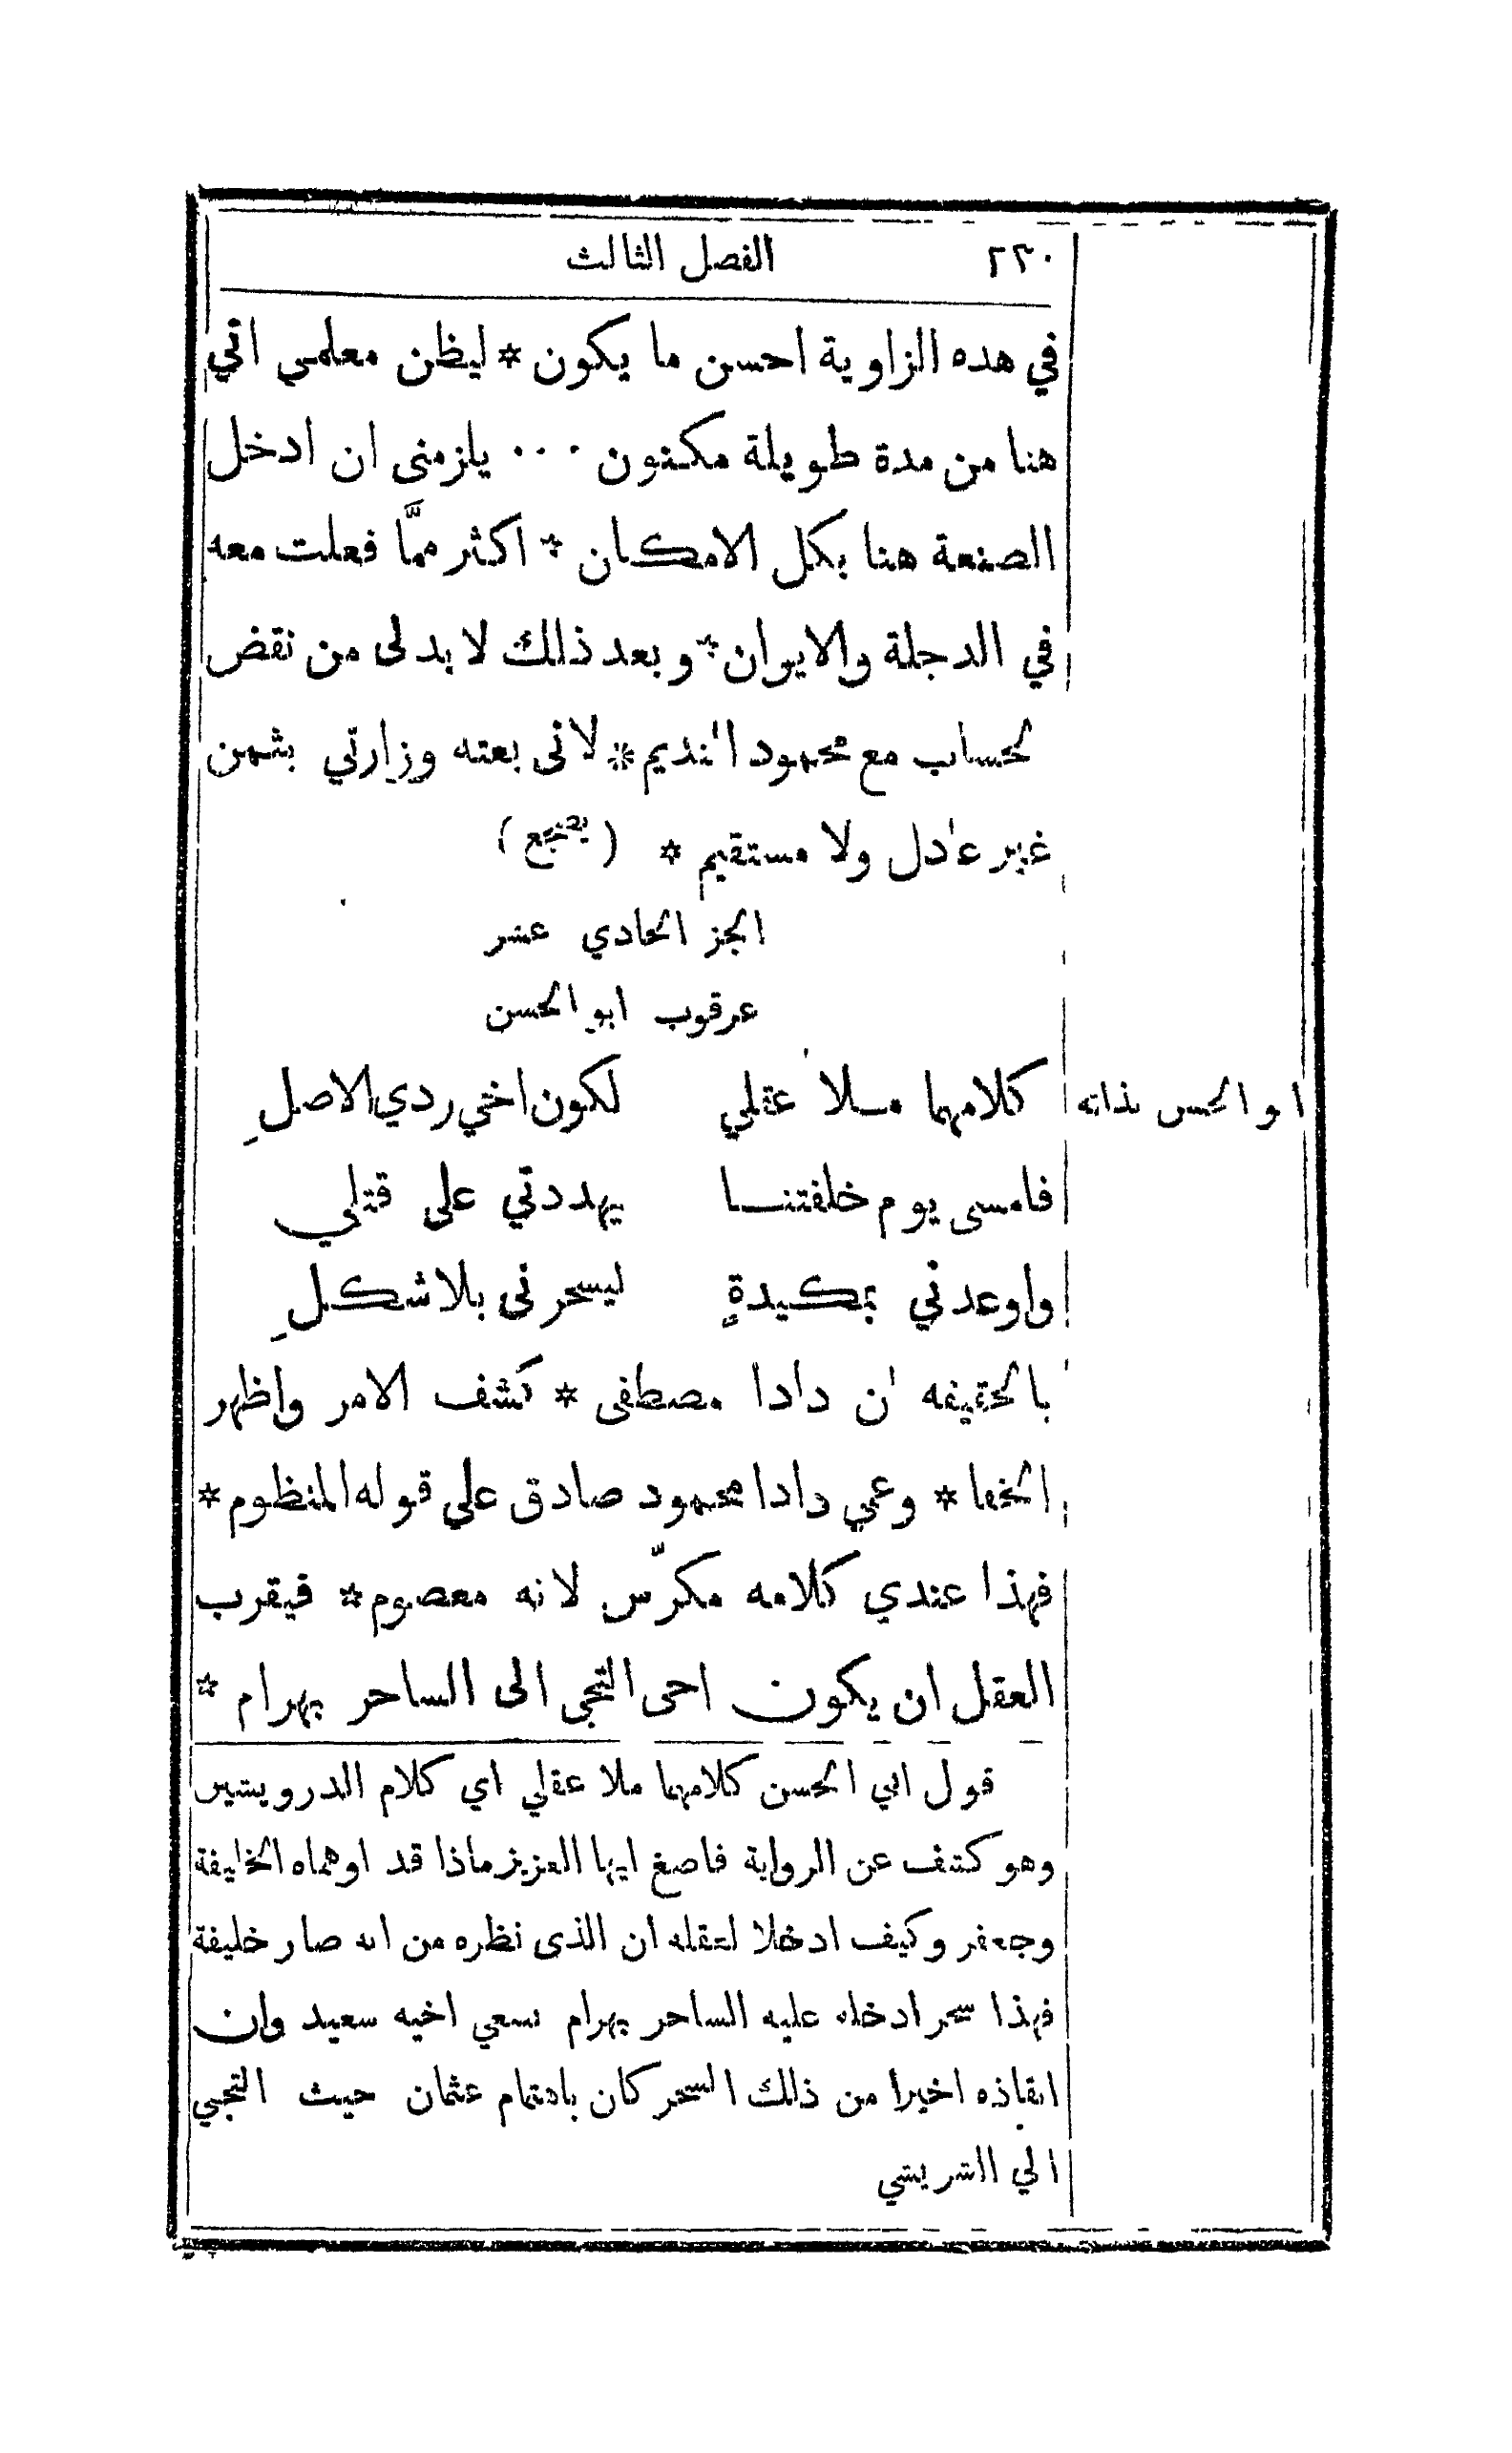 ٢٢٠ الفصل الثالث
في هده الزاوية احسن ما يكون * ليظن معلمي اني
هنا من مدة طويلة مكنون ... يلزمنى ان ادخل
الصنعة هنا بكل الامكان * اكثر ممَّا فعلت معه
في الدجلة والايوان * وبعد ذلك لا بد لى من نقض
لحساب مع محمود النديم * لانى بعته وزارتي بثمن
غير عادل ولا مستقيم * (يضجع)
الجز الحادي عشر
عرقوب ابو الحسن
ابو الحسن بذاته
كلامهما ملا عقلي لكون اخي ردي الاصلِ
فامسى يوم خلفتنا يهددني على قتلي
واوعدني بمكيدةٍ ليسحرنى بلا شكلِ
بالحقيقه ان دادا مصطفى * كشف الامر واظهر
الخفا * وعمي دادا محمود صادق على قوله المنظوم *
فهذا عندي كلامه مكرّس لانه معصوم * فيقرب
العقل ان يكون اخى التجى الى الساحر بهرام *
قول ابي الحسن كلامهما ملا عقلي اي كلام الدرويشين
وهو كشف عن الرواية فاصغ ايها العزيز ماذا قد اوهماه الخليفة
وجعفر وكيف ادخلا لعقله ان الذى نظره من انه صار خليفة
فهذا سحر ادخله عليه الساحر بهرام بسعي اخيه سعيد وان
انقاذه اخيرا من ذلك السحر كان باهتمام عثمان حيث التجي
الي الشريشي